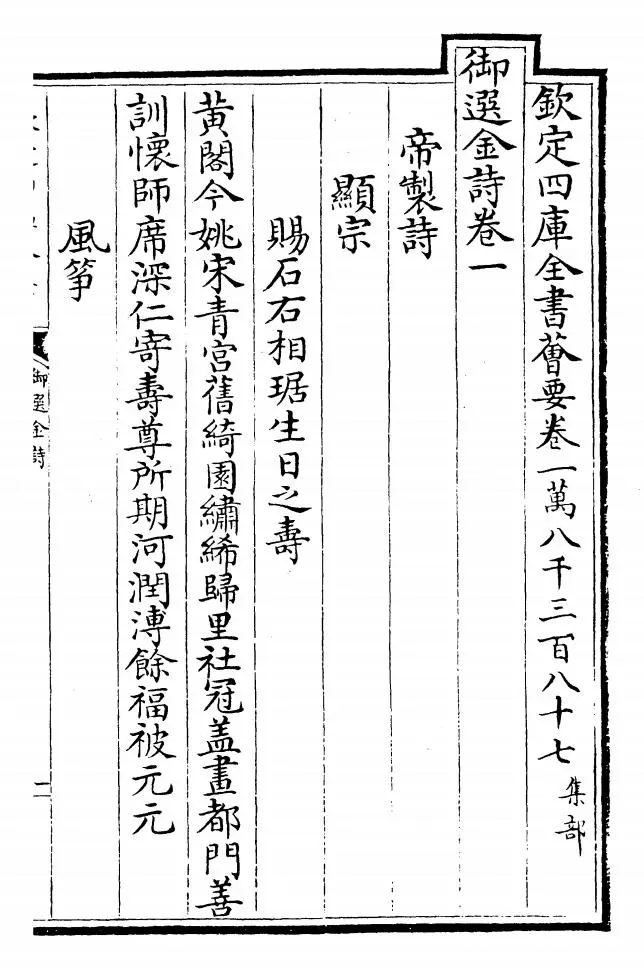 欽定四庫全書薈要卷一萬八千三百八十七 集部
御選金詩卷一
帝製詩
顯宗
賜石右相琚生日之壽
黄閣今姚宋青宮舊綺園繡絺歸里社冠盖畫都門善
訓懷師席深仁寄壽尊所期河潤溥餘福被元元
風箏
御選金詩
二